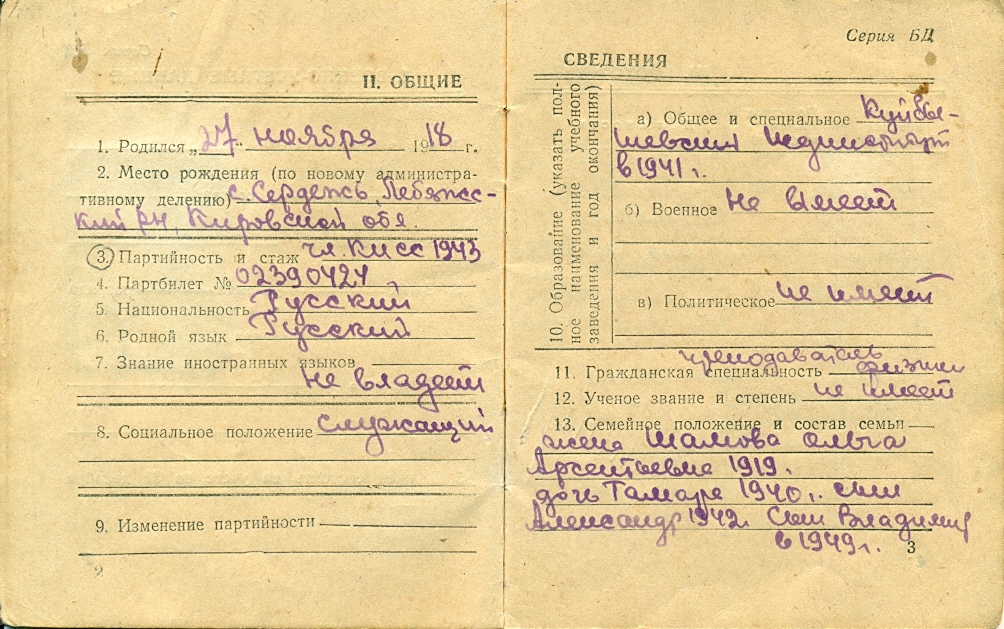 II. ОБЩИЕ
1. Родился „27“ ноября 1918 г.
2. Место рождения (по новому администра-
тивному делению) с. Сердежь, Лебяжс-
кий р-н, Кировской обл.
3. Партийность и стаж чл. КПСС 1943
4. Партбилет № 02390424
5. Национальность Русский
6. Родной язык Русский
7. Знание иностранных языков
не владеет
8. Социальное положение служащий
9. Изменение партийности
2
Серия БД
СВЕДЕНИЯ
10. Образование (указать пол-
ное наименование учебного
заведения и год окончания)
а) Общее и специальное Куйбы-
шевский Пединститут
в 1941 г.
б) Военное не имеет
в) Политическое не имеет
преподаватель
11. Гражданская специальность физики
12. Ученое звание и степень не имеет
13. Семейное положение и состав семьи
жена Шамова Ольга
Арсентьевна 1919.
дочь Тамара 1940 г. сын
Александр 1942. Сын Владимир
в 1949 г.
3